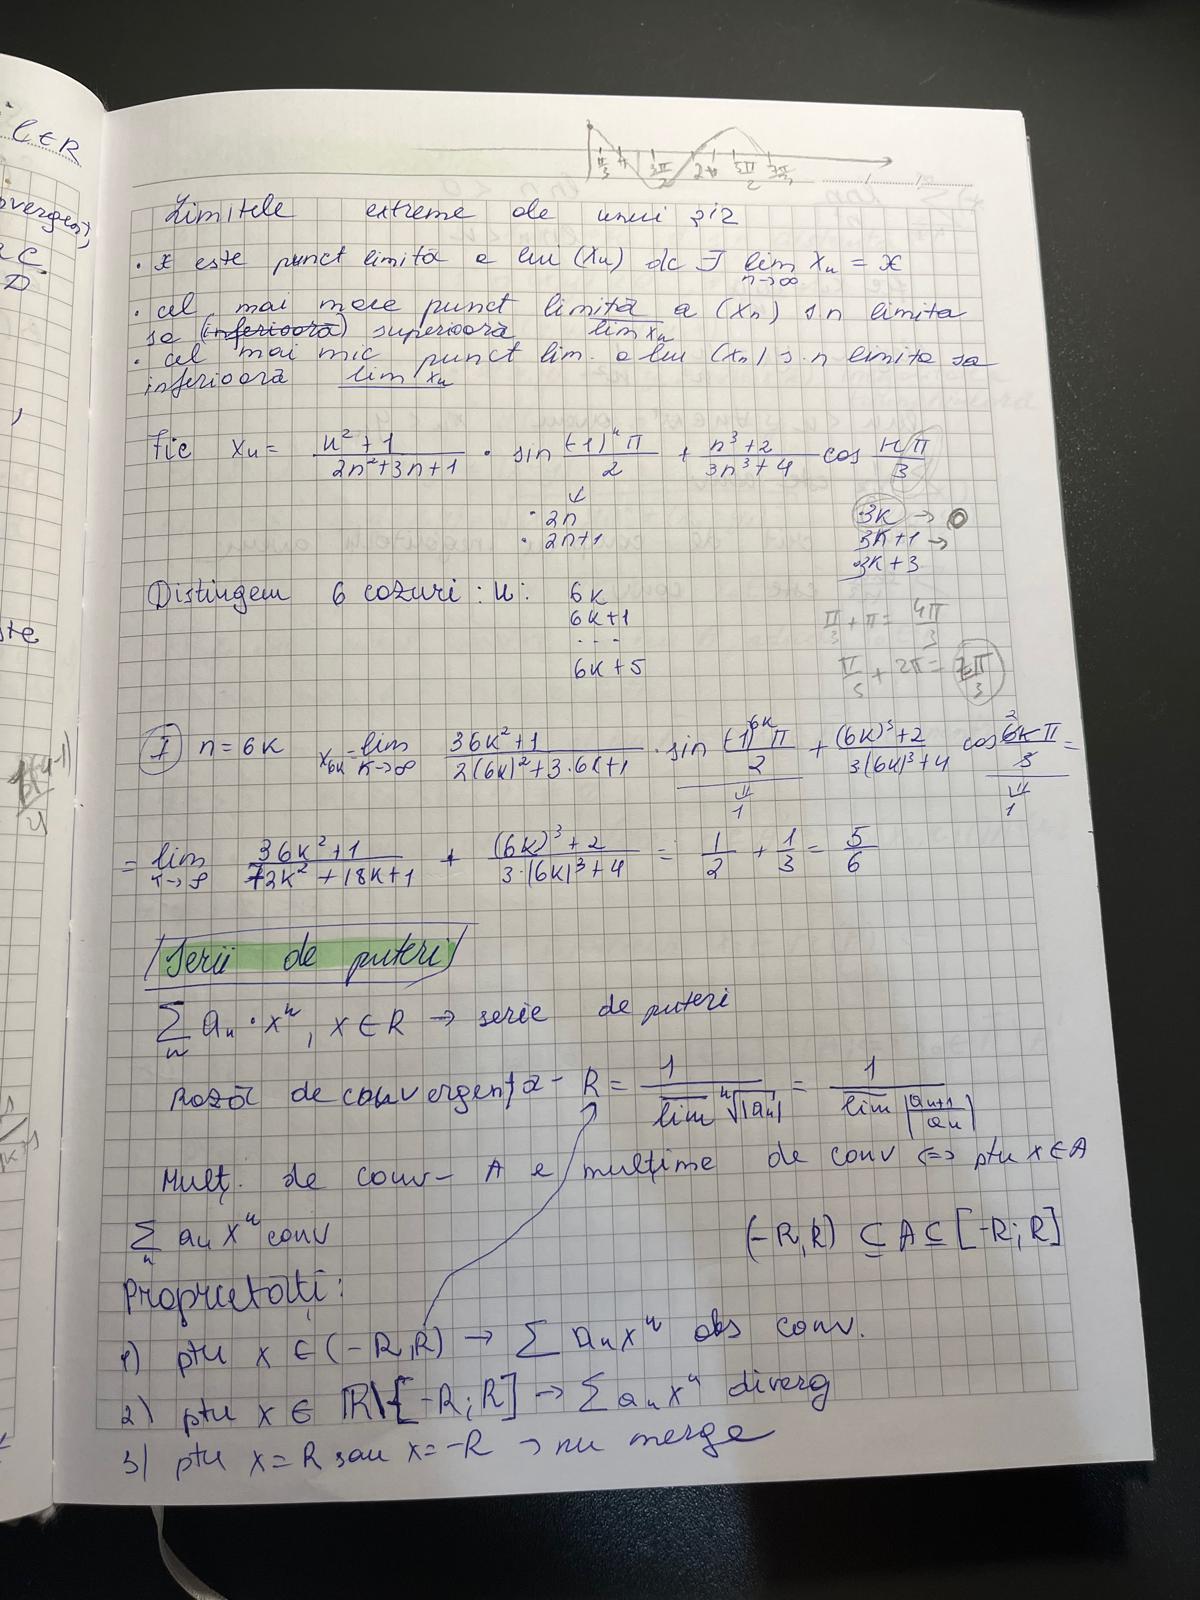 l ∈ R
Limitele extreme de unui șir
• x este punct limită a lui (xn) dc ∃ lim n→∞ xn = x
• cel mai mare punct limită a (xn) s n limita
sa (inferioară) superioară lim xn
• cel mai mic punct lim. a lui (xn) s.n limita sa
inferioară lim xn
Fie xn = n²+1 / 2n²+3n+1 • sin (-1)ⁿπ / 2 + n³+2 / 3n³+4 cos nπ / 3
↓
• 2n
• 2n+1
3k → 0
3k+1 →
3k+3
Distingem 6 cazuri : n: 6k
6k+1
...
6k+5
π/3 + π = 4π/3
π/3 + 2π = 7π/3
I n = 6k x6k = lim k→∞ 36k²+1 / 2(6k)²+3·6k+1 · sin (-1)^6k π / 2 + (6k)³+2 / 3(6k)³+4 cos 6kπ / 3 =
1 1
= lim n→∞ 36k²+1 / 72k²+18k+1 + (6k)³+2 / 3·(6k)³+4 = 1/2 + 1/3 = 5/6
Serii de puteri
∑n an · xⁿ, x ∈ R → serie de puteri
Rază de convergență - R = 1 / lim ⁿ√|an| = 1 / lim |an+1 / an|
Mulț. de conv - A e mulțime de conv ⇔ ptu x ∈ A
∑n an xⁿ conv
(-R, R) ⊆ A ⊆ [-R; R]
Proprietăți:
1) ptu x ∈ (-R, R) → ∑ an xⁿ abs conv.
2) ptu x ∈ R\[-R; R] → ∑ an xⁿ diverg
3) ptu x = R sau x = -R → nu merge